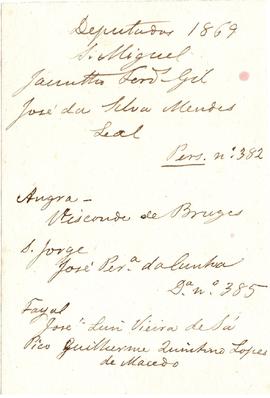 Deputados 1869
S. Miguel
Jacintho Ferd. Gil
José da Silva Mendes
Leal
Pers. nº 382
Angra -
Visconde de Bruges
S. Jorge
José Per.ª da Cunha
D.ª nº 385
Fayal
José Luiz Vieira de Sá
Pico Guilherme Quintino Lopes
de Macedo